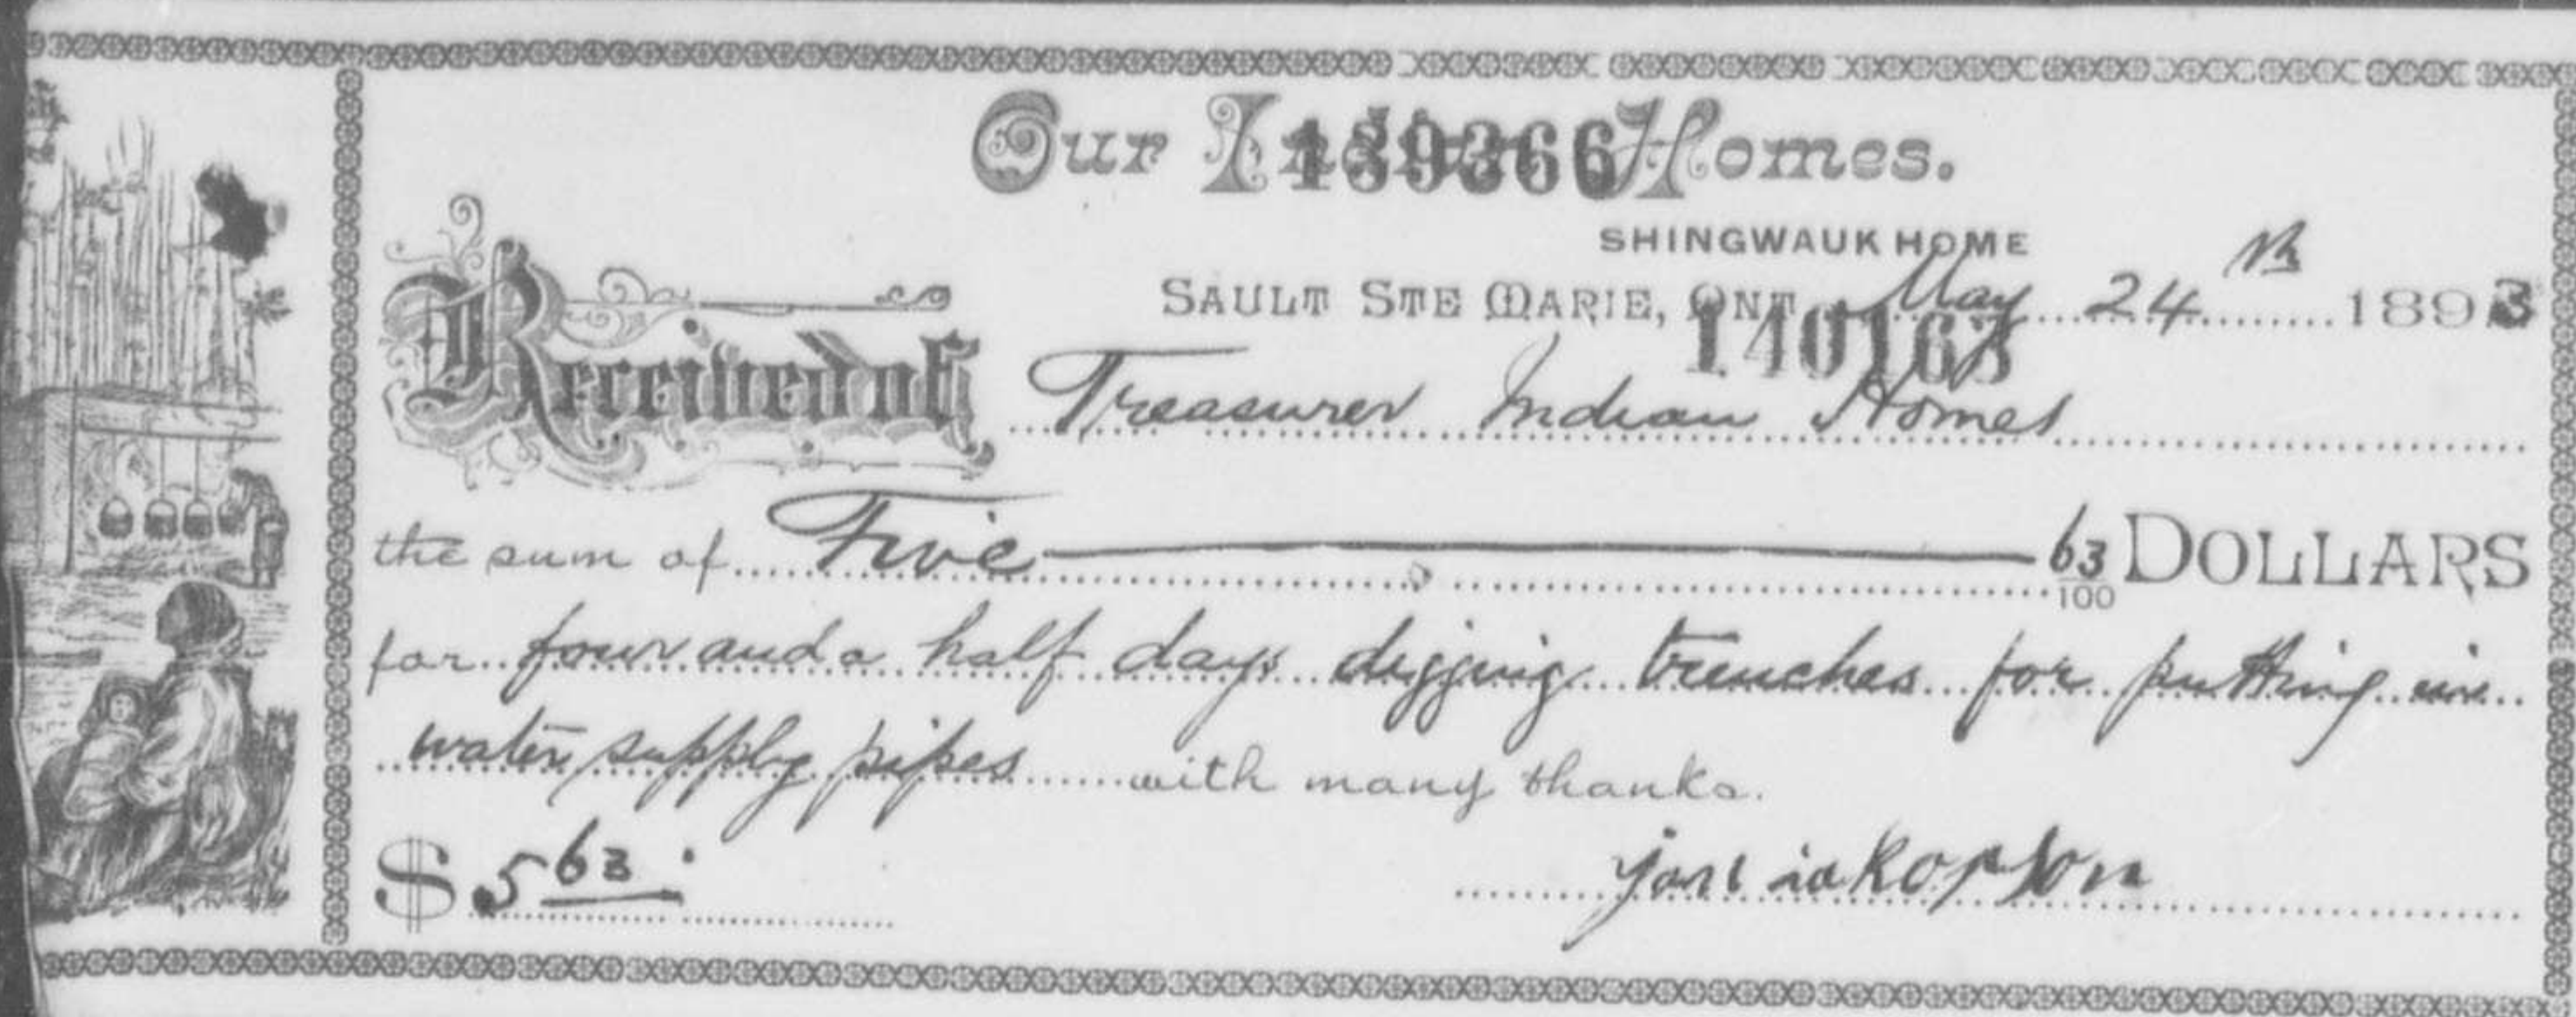 Our Indian Homes.
139366
SHINGWAUK HOME
SAULT STE MARIE, ONT. May 24th 1893
140163
Received of Treasurer Indian Homes
the sum of Five 63/100 DOLLARS
for four and a half days digging trenches for putting in
water supply pipes with many thanks.
$ 5 63